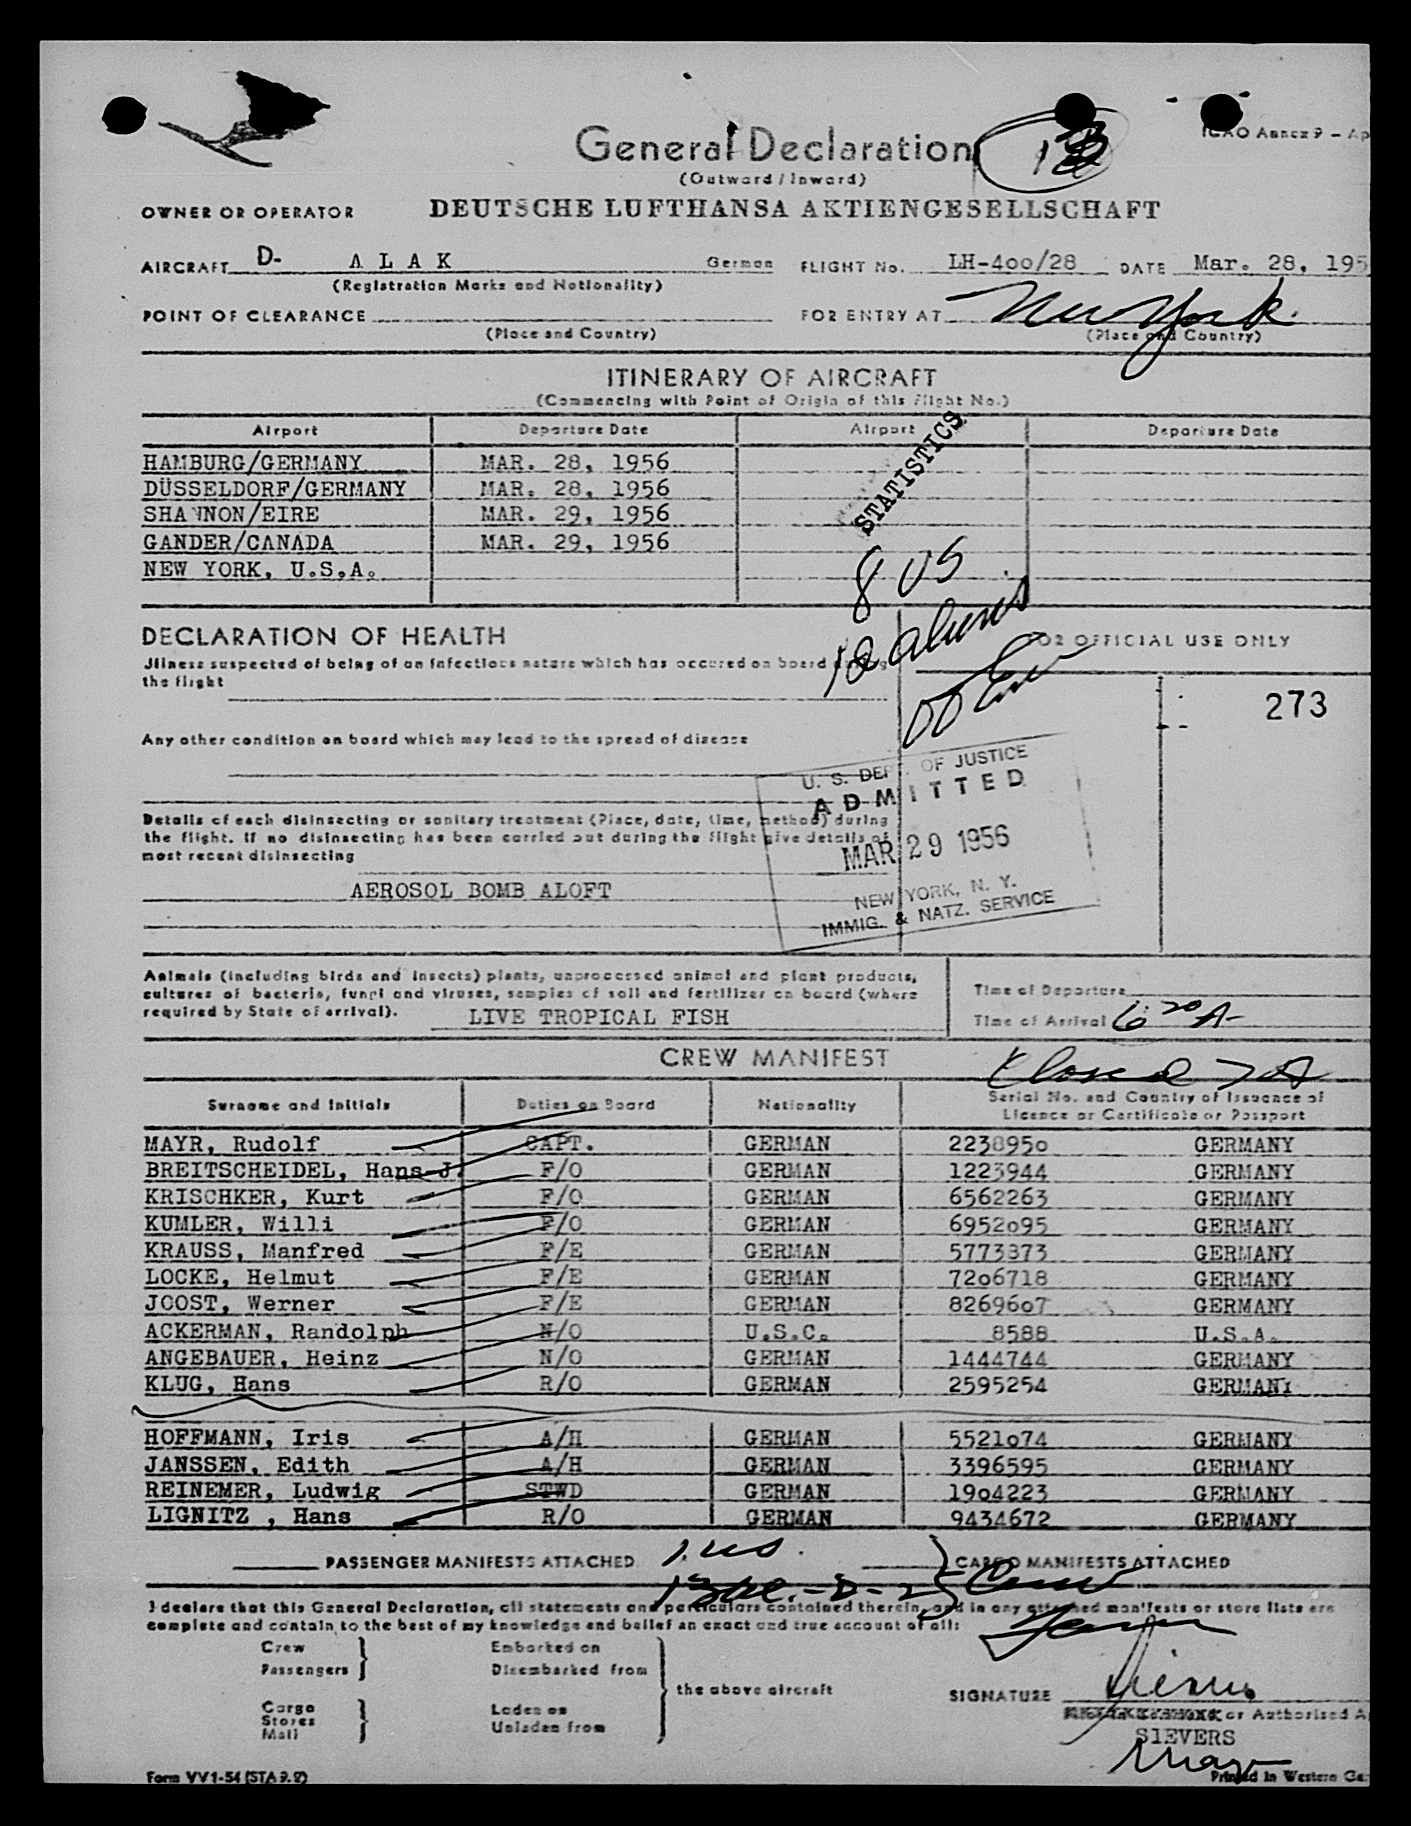 ICAO Annex 9 - Ap
General Declaration
(Outward / Inward)
OWNER OR OPERATOR DEUTSCHE LUFTHANSA AKTIENGESELLSCHAFT
AIRCRAFT D- A L A K German FLIGHT No. LH-4oo/28 DATE Mar. 28, 195
(Registration Marks and Nationality)
POINT OF CLEARANCE FOR ENTRY AT New York
(Place and Country) (Place and Country)
ITINERARY OF AIRCRAFT
(Commencing with Point of Origin of this Flight No.)
Airport Departure Date Airport Departure Date
HAMBURG/GERMANY MAR. 28, 1956
DÜSSELDORF/GERMANY MAR. 28, 1956
SHANNON/EIRE MAR. 29, 1956
GANDER/CANADA MAR. 29, 1956
NEW YORK, U.S.A.
STATISTICS
8 US
12 aliens
DECLARATION OF HEALTH
FOR OFFICIAL USE ONLY
Illness suspected of being of an infectious nature which has occured on board during
the flight
273
Any other condition on board which may lead to the spread of disease
U. S. DEPT. OF JUSTICE
ADMITTED
MAR 29 1956
NEW YORK, N. Y.
IMMIG. & NATZ. SERVICE
Details of each disinsecting or sanitary treatment (Place, date, time, method) during
the flight. If no disinsecting has been carried out during the flight give details of
most recent disinsecting
AEROSOL BOMB ALOFT
Animals (including birds and insects) plants, unprocessed animal and plant products,
cultures of bacteria, fungi and viruses, samples of soil and fertilizer on board (where
required by State of arrival). LIVE TROPICAL FISH
Time of Departure
Time of Arrival 6 20 A
CREW MANIFEST
Closed 7 A
Surname and Initials Duties on Board Nationality Serial No. and Country of Issuance of
Licence or Certificate or Passport
MAYR, Rudolf CAPT. GERMAN 223895o GERMANY
BREITSCHEIDEL, Hans-J. F/O GERMAN 1223944 GERMANY
KRISCHKER, Kurt F/O GERMAN 6562263 GERMANY
KUMLER, Willi F/O GERMAN 6952o95 GERMANY
KRAUSS, Manfred F/E GERMAN 5773373 GERMANY
LOCKE, Helmut F/E GERMAN 72o6718 GERMANY
JOOST, Werner F/E GERMAN 82696o7 GERMANY
ACKERMAN, Randolph N/O U.S.C. 8588 U.S.A.
ANGEBAUER, Heinz N/O GERMAN 1444744 GERMANY
KLUG, Hans R/O GERMAN 2595254 GERMANY
HOFFMANN, Iris A/H GERMAN 5521o74 GERMANY
JANSSEN, Edith A/H GERMAN 3396595 GERMANY
REINEMER, Ludwig STWD GERMAN 19o4223 GERMANY
LIGNITZ , Hans R/O GERMAN 9434672 GERMANY
PASSENGER MANIFESTS ATTACHED 1 US CARGO MANIFESTS ATTACHED
Crew
I declare that this General Declaration, all statements and particulars contained therein, and in any attached manifests or store lists are
complete and contain to the best of my knowledge and belief an exact and true account of all:
Crew Embarked on
Passengers Disembarked from
the above aircraft
Cargo Laden on
Stores Unladen from
Mail
SIGNATURE
or Authorised A
SIEVERS
Form VV1-54 (STA 9.2)
Printed in Western Ge